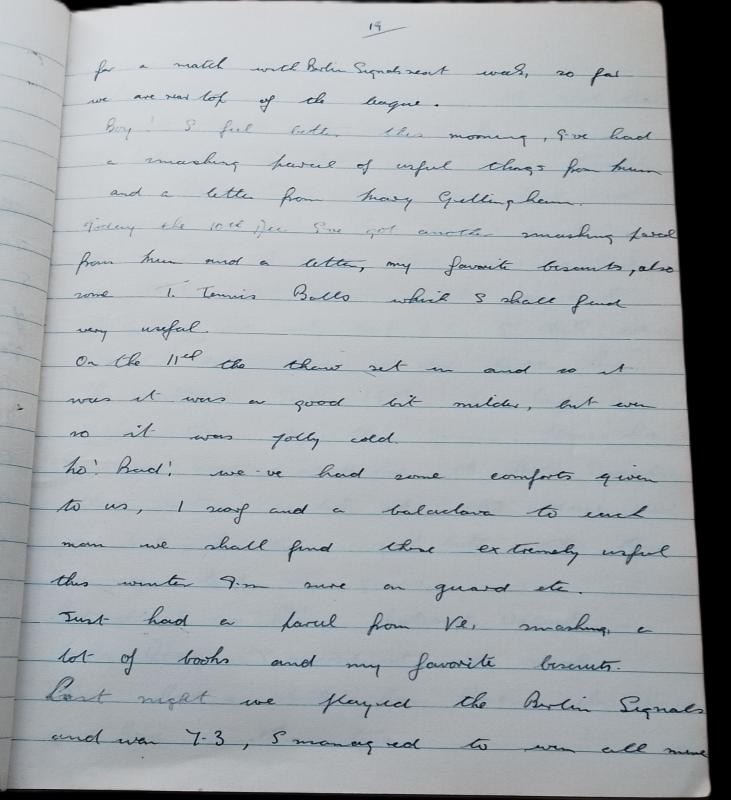 19
for a match with Berlin Signals next week, so far
we are near top of the league.
Boy! I feel better this morning, I've had
a smashing parcel of useful things from Mum
and a letter from Mary Gillingham.
the 10th Dec I've got another smashing parcel
from Mum and a letter, my favorite biscuits, also
some T. Tennis Balls which I shall find
very useful.
On the 11th the thaw set in and so it
was it was a good bit milder, but even
so it was jolly cold.
Ho! Bad! we've had some comforts given
to us, 1 scarf and a balaclava to each
man we shall find these extremely useful
this winter I'm sure on guard etc.
Just had a parcel from Ve, smashing, a
lot of books and my favorite biscuits.
Last night we played the Berlin Signals
and won 7-3, I managed to win all mine